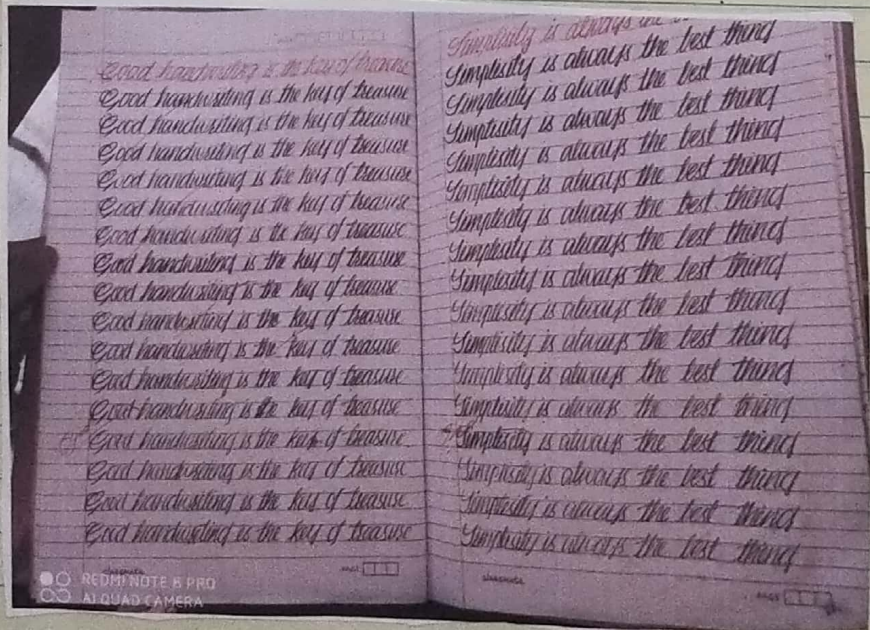 Good handwriting is the key of treasure
Good handwriting is the key of treasure
Good handwriting is the key of treasure
Good handwriting is the key of treasure
Good handwriting is the key of treasure
Good handwriting is the key of treasure
Good handwriting is the key of treasure
Good handwriting is the key of treasure
Good handwriting is the key of treasure
Good handwriting is the key of treasure
Good handwriting is the key of treasure
Good handwriting is the key of treasure
Good handwriting is the key of treasure
Good handwriting is the key of treasure
Good handwriting is the key of treasure
Good handwriting is the key of treasure
Good handwriting is the key of treasure
classmate
PAGE
REDMI NOTE 8 PRO
AI QUAD CAMERA
Simplisity is always the
Simplisity is always the best thing
Simplisity is always the best thing
Simplisity is always the best thing
Simplisity is always the best thing
Simplisity is always the best thing
Simplisity is always the best thing
Simplisity is always the best thing
Simplisity is always the best thing
Simplisity is always the best thing
Simplisity is always the best thing
Simplisity is always the best thing
Simplisity is always the best thing
Simplisity is always the best thing
Simplisity is always the best thing
Simplisity is always the best thing
Simplisity is always the best thing
classmate
PAGE